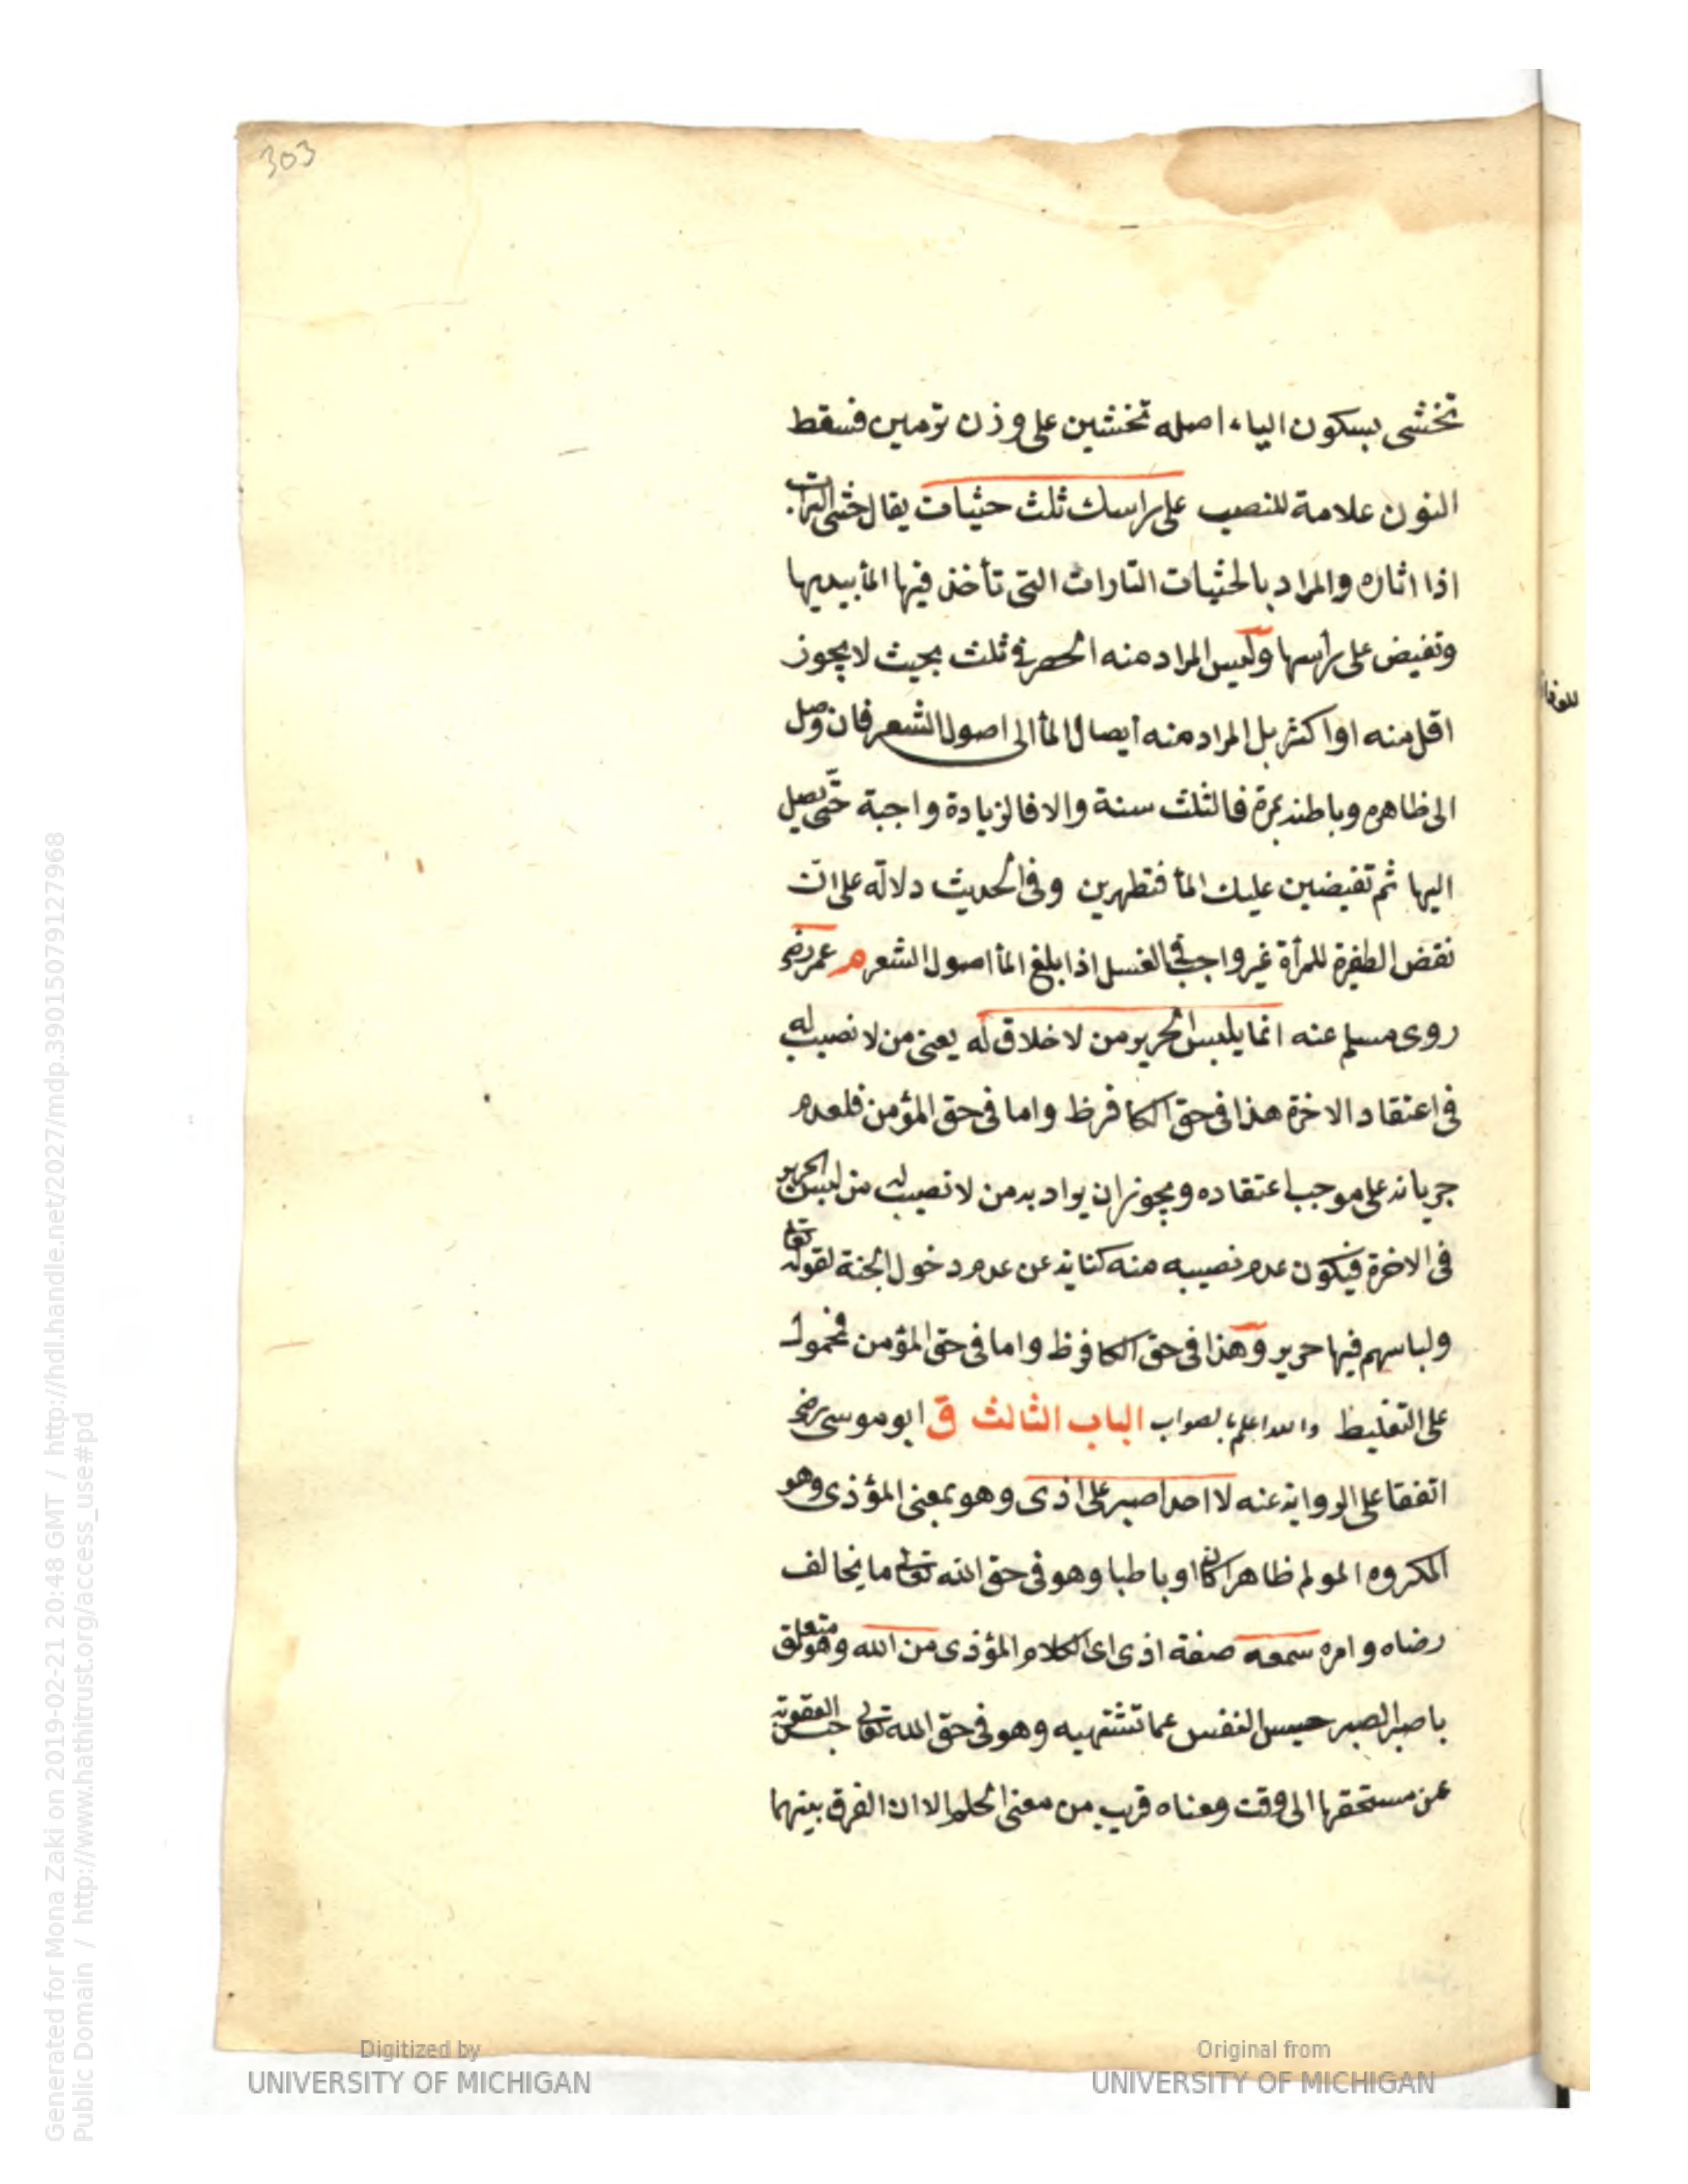 303
تخشى بسكون الياء اصله تخشين على وزن ترمين فسقط
النون علامة للنصب على راسك ثلث حثيات يقال حثى التراب
اذا اثاره والمراد بالحثيات التارات التى تأخذ فيها المأ بيديها
وتفيض على رأسها وليس المراد منه الحصر فى ثلث بحيث لا يجوز
اقل منه او اكثر بل المراد منه ايصال المأ الى اصول الشعر فان وصل
الى ظاهره وباطنه بمرة فالثلث سنة والا فالزيادة واجبة حتى يصل
اليها ثم تفيضين عليك المأ فتطهرين وفى الحديث دلالة على ان
نقض الظفرة للمرأة غير واجب فى الغسل اذا بلغ المأ اصول الشعر م عمر رضى
روى مسلم عنه انما يلبس الحرير من لا خلاق له يعنى من لا نصيب له
فى اعتقاد الاخرة هذا فى حق الكافر ظ واما فى حق المؤمن فلعدم
جريانه على موجب اعتقاده ويجوز ان يراد به من لا نصيب له من لبس الحرير
فى الاخرة فيكون عدم نصيبه منه كناية عن عدم دخول الجنة لقوله تعالى
ولباسهم فيها حرير وهذا فى حق الكافر ظ واما فى حق المؤمن فمحمول
على التغليظ والله اعلم بالصواب الباب الثالث ق ابو موسى رضى
اتفقا على الرواية عنه لا احد اصبر على اذى وهو بمعنى المؤذى وهو
المكروه المولم ظاهرا كان او باطنا وهو فى حق الله تعالى ما يخالف
رضاه وامره سمعه صفة اذى اى الكلام المؤذى من الله وهو متعلق
باصبر الصبر حبس النفس عما تشتهيه وهو فى حق الله تعالى حبس العقوبة
عن مستحقها الى وقت ومعناه قريب من معنى الحلم الا ان الفرق بينهما
Generated for Mona Zaki on 2019-02-21 20:48 GMT / http://hdl.handle.net/2027/mdp.39015079127968
Public Domain / http://www.hathitrust.org/access_use#pd
Digitized by
UNIVERSITY OF MICHIGAN
Original from
UNIVERSITY OF MICHIGAN